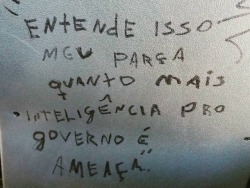 ENTENDE ISSO
MEU PARÇA
QUANTO MAIS
+ INTELIGÊNCIA PRO
GOVERNO É
AMEAÇA."